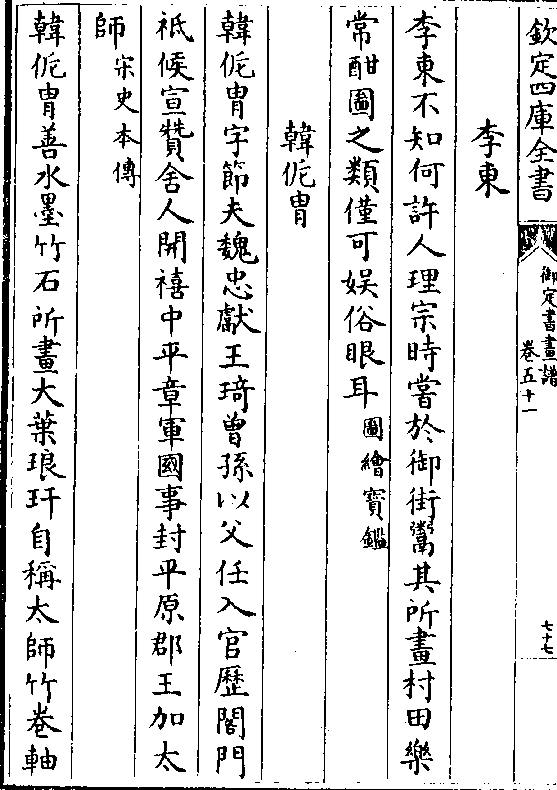 欽定四庫全書
御定書畫譜
卷五十一
七十七
李東
李東不知何許人理宗時嘗於御街鬻其所畫村田樂
常酣圖之類僅可娱俗眼耳圖繪寳鑑
韓侂胄
韓侂胄字節夫魏忠獻王琦曾孫以父任入官歷閤門
祗候宣贊舍人開禧中平章軍國事封平原郡王加太
師宋史本傳
韓侂胄善水墨竹石所畫大葉琅玕自稱太師竹卷軸